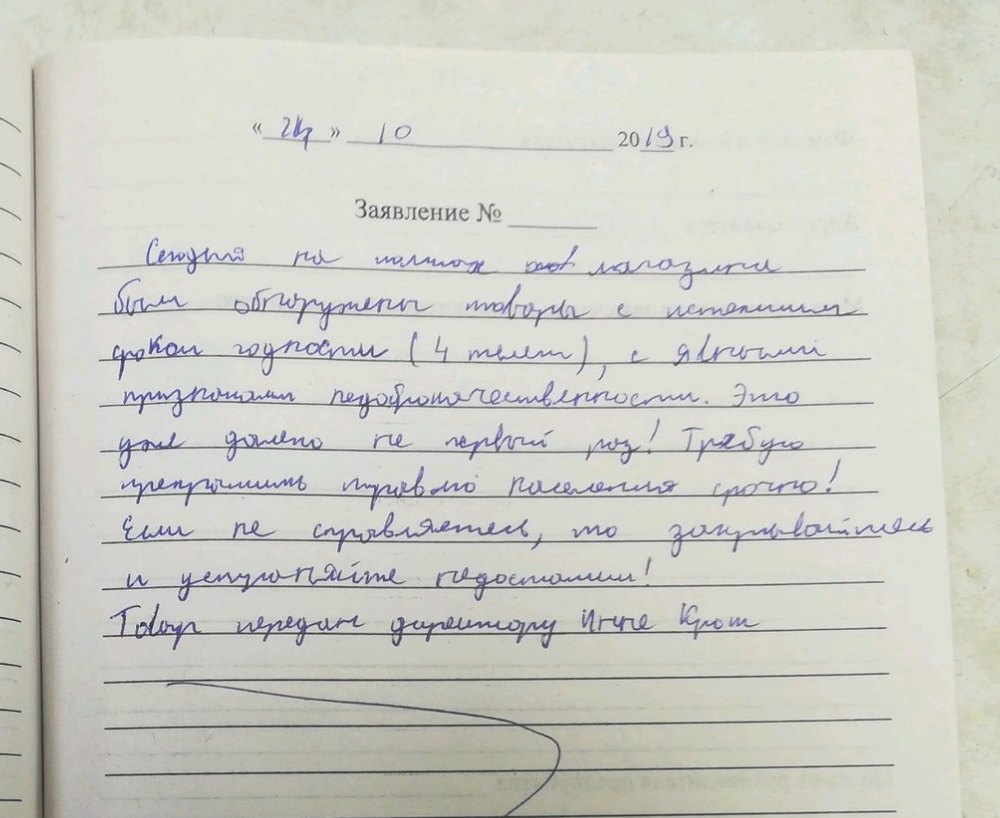 « 24 » 10 2019 г.
Заявление №
Сегодня на полках магазина
были обнаружены товары с истекшим
сроком годности (4 телет), с явными
признаками недоброкачественности. Это
уже далеко не первый раз! Требую
прекратить травлю населения срочно!
Если не справляетесь, то закрывайтесь
и устраняйте недостатки!
Товар передан директору Инне Крот